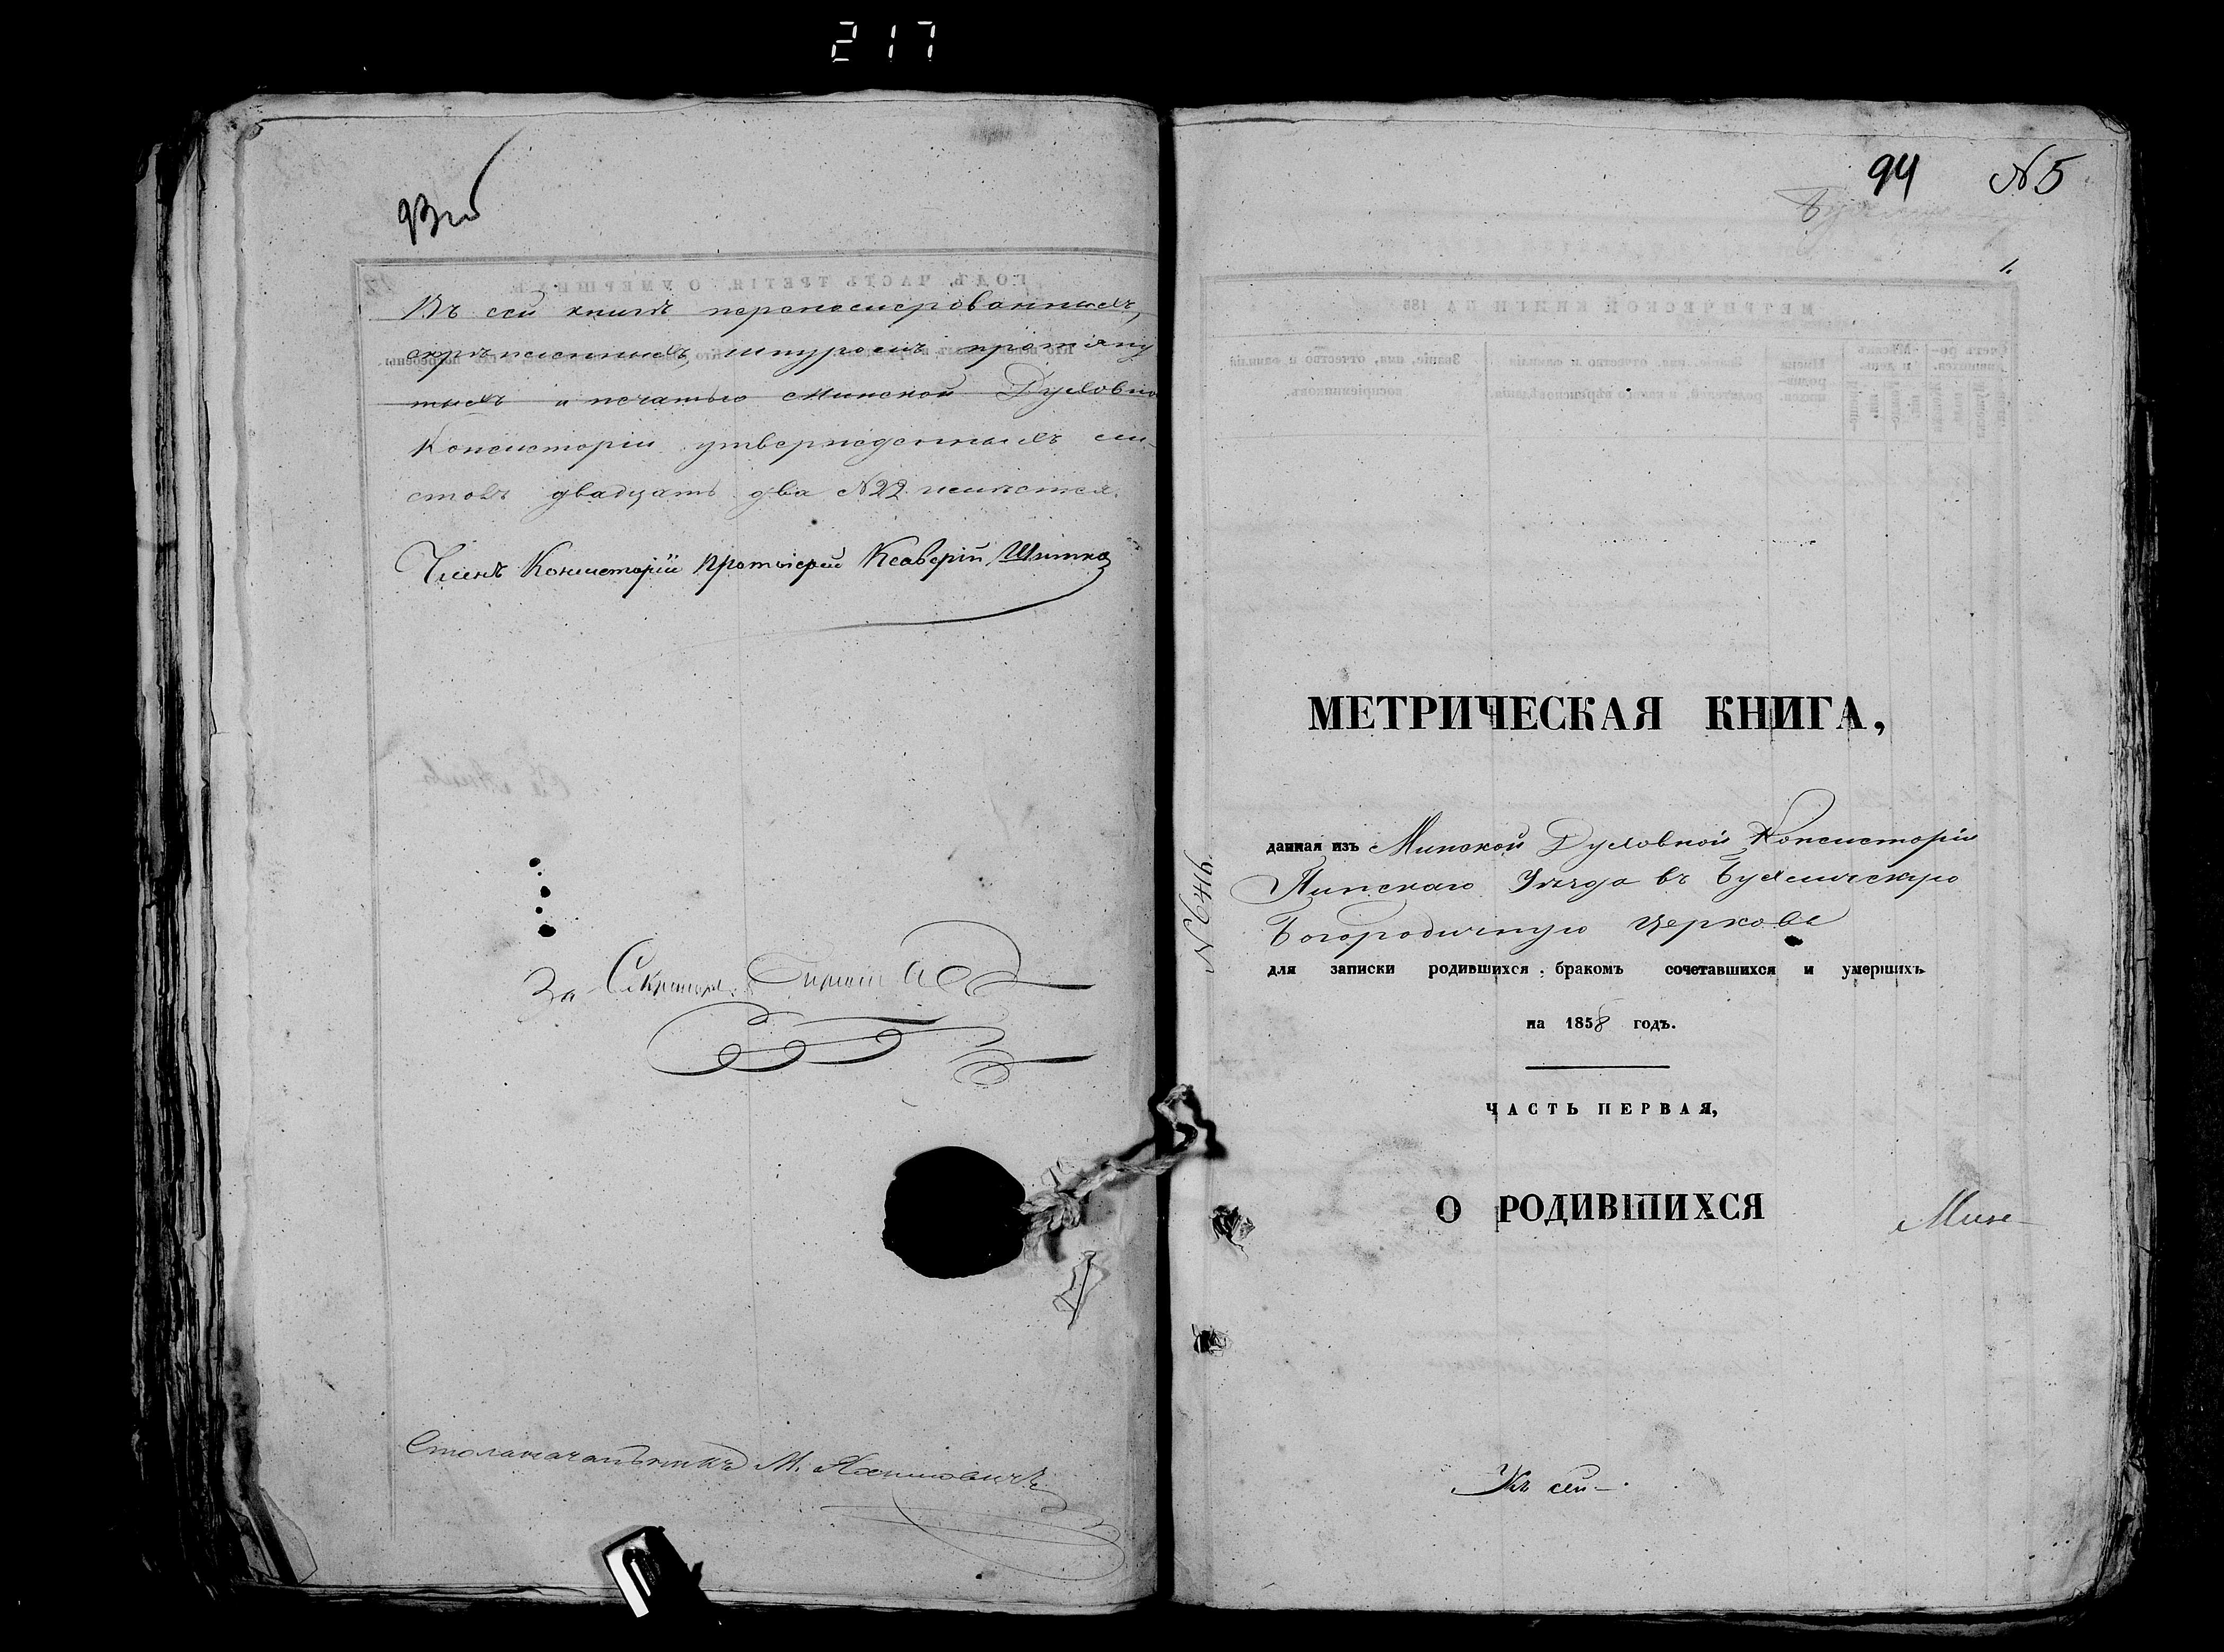 217
93 об
Въ сей книгѣ перенумерованныхъ,
скрѣпленныхъ, шнуромъ протяну
тыхъ и печатью Минской Духовной
Консисторіи утвержденныхъ ли-
стовъ двадцать два №22 имѣется.
Членъ Консисторіи Протоіерей Ксаверій Шитко
За Секретаря
Столоначальникъ М.
94 №5
1.
МЕТРИЧЕСКАЯ КНИГА,
данная изъ Минской Духовной Консисторіи
Пинскаго Уѣзда въ Бухличскую
Богородичную церковь
для записки родившихся, бракомъ сочетавшихся и умершихъ
на 1858 годъ.
ЧАСТЬ ПЕРВАЯ,
О РОДИВШИХСЯ
Мин-
Къ сей-
№6416.